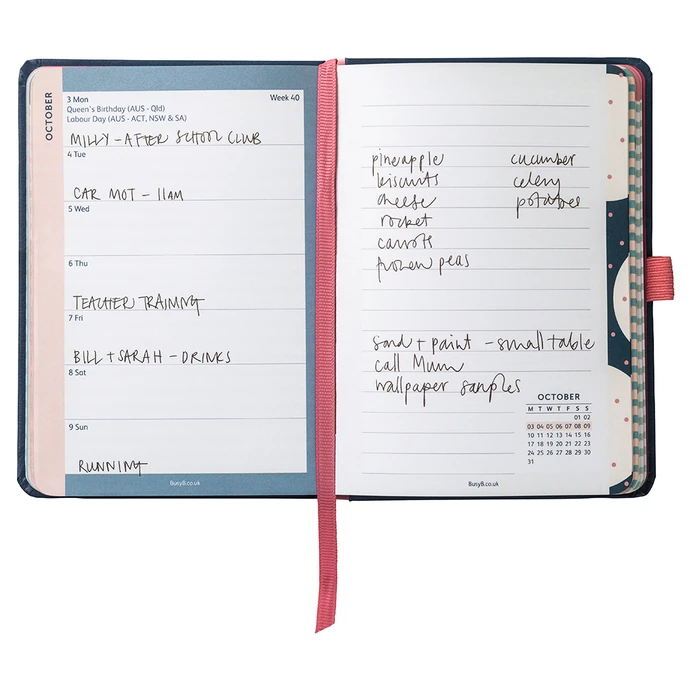 OCTOBER
3 Mon Week 40
Queen's Birthday (AUS - Qld)
Labour Day (AUS - ACT, NSW & SA)
MILLY - AFTER SCHOOL CLUB
4 Tue
CAR MOT - 11AM
5 Wed
6 Thu
TEACHER TRAINING
7 Fri
BILL + SARAH - DRINKS
8 Sat
9 Sun
RUNNING
BusyB.co.uk
pineapple cucumber
biscuits celery
cheese potatoes
rocket
carrots
frozen peas
sand + paint - small table
call Mum
wallpaper samples
OCTOBER
M T W T F S S
01 02
03 04 05 06 07 08 09
10 11 12 13 14 15 16
17 18 19 20 21 22 23
24 25 26 27 28 29 30
31
BusyB.co.uk